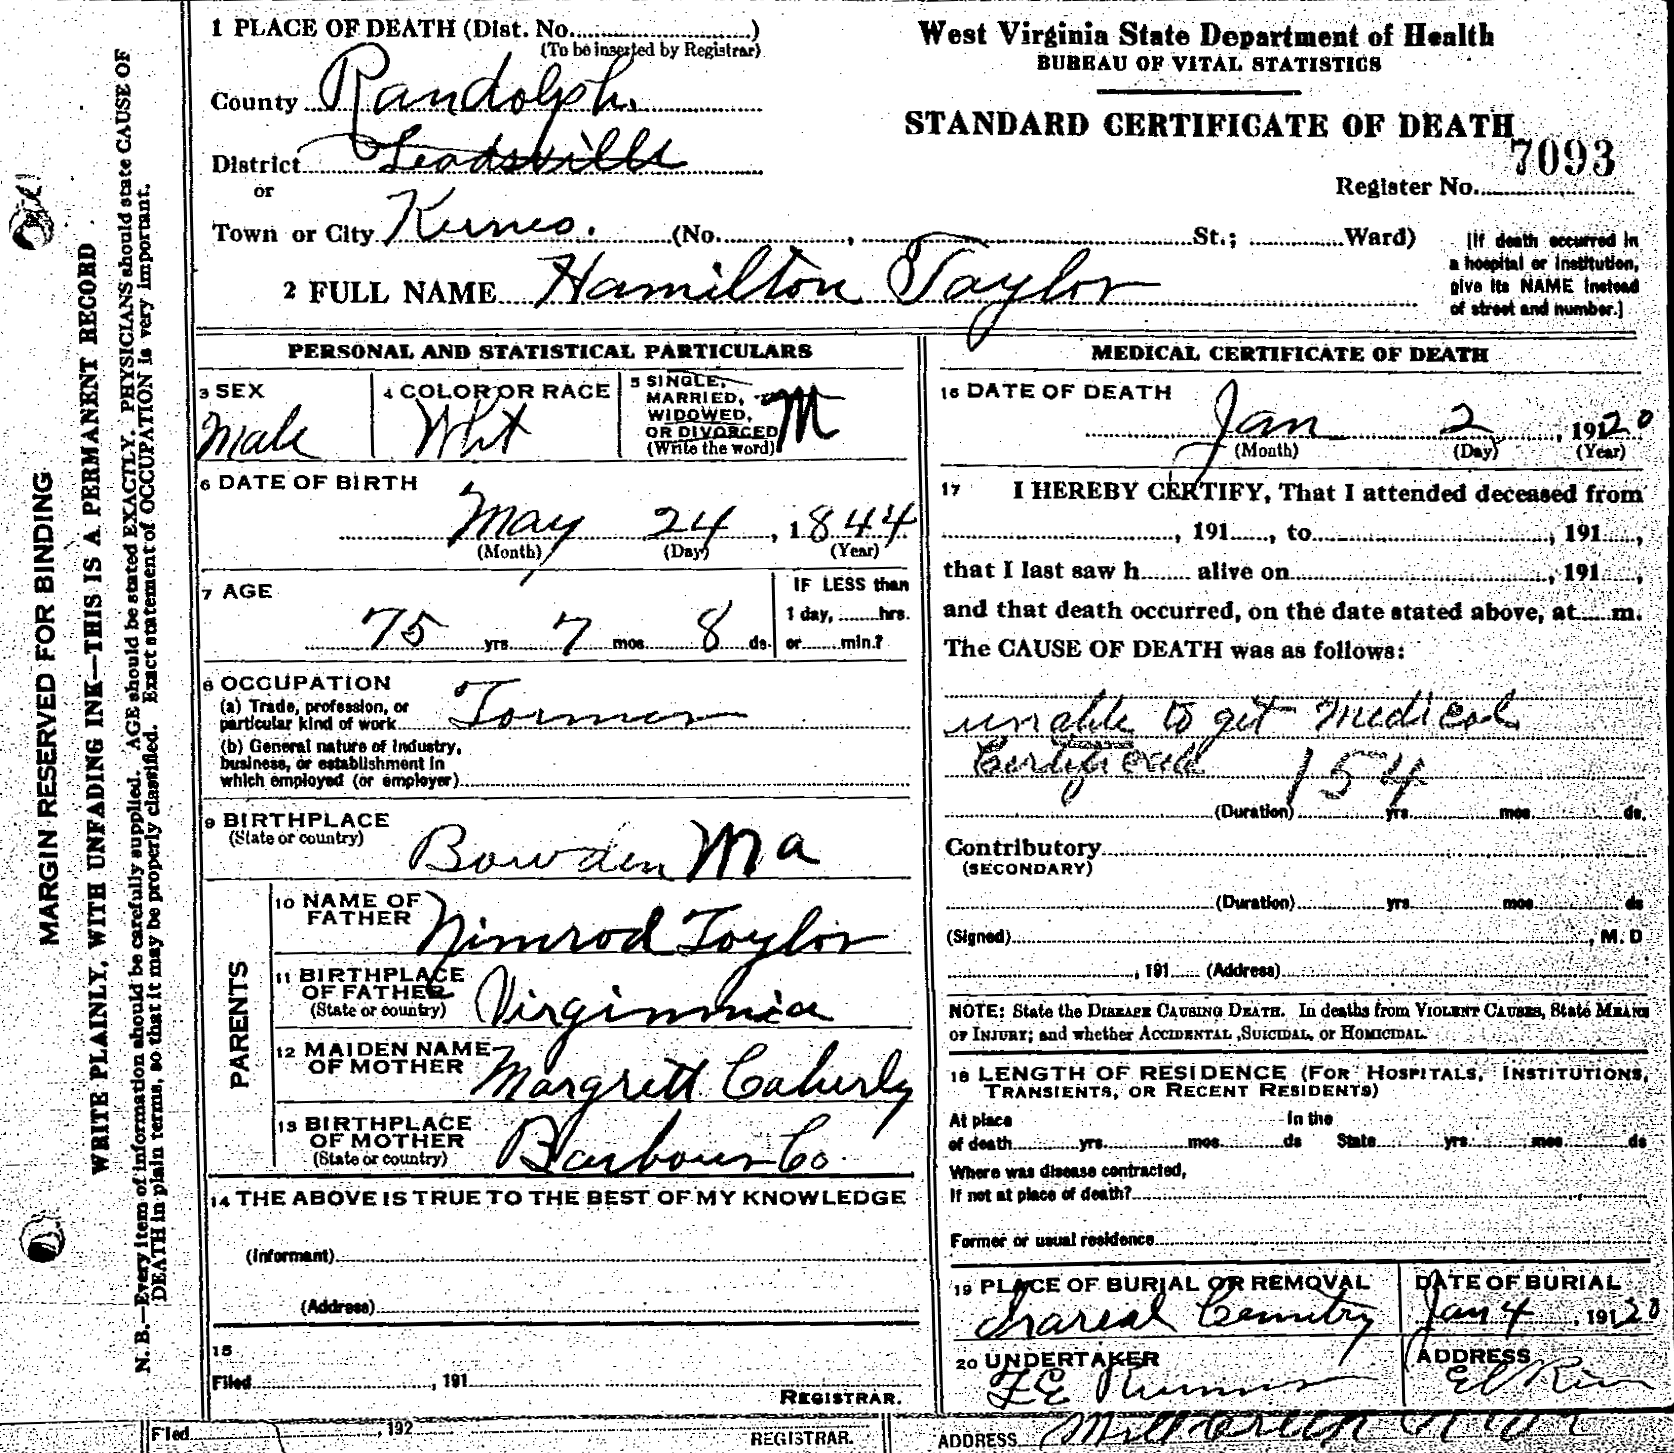 1 PLACE OF DEATH (Dist. No. )
(To be inserted by Registrar)
County Randolph.
District Leadsville
or
Town or City Kerens. (No. , St.; Ward)
2 FULL NAME Hamilton Taylor
West Virginia State Department of Health
BUREAU OF VITAL STATISTICS
STANDARD CERTIFICATE OF DEATH
7093
Register No.
[If death occurred in
a hospital or institution,
give its NAME instead
of street and number.]
MARGIN RESERVED FOR BINDING
WRITE PLAINLY, WITH UNFADING INK—THIS IS A PERMANENT RECORD
N. B.—Every item of information should be carefully supplied. AGE should be stated EXACTLY. PHYSICIANS should state CAUSE OF
DEATH in plain terms, so that it may be properly classified. Exact statement of OCCUPATION is very important.
PERSONAL AND STATISTICAL PARTICULARS
3 SEX
Male
4 COLOR OR RACE
Wht
5 SINGLE,
MARRIED,
WIDOWED,
OR DIVORCED
(Write the word)
M
6 DATE OF BIRTH
May 24, 1844
(Month) (Day) (Year)
7 AGE
75 yrs 7 mos 8 ds.
IF LESS than
1 day, hrs.
or min.?
8 OCCUPATION
(a) Trade, profession, or
particular kind of work Farmer
(b) General nature of Industry,
business, or establishment in
which employed (or employer)
9 BIRTHPLACE
(State or country)
Bowden
10 NAME OF
FATHER
Nimrod Taylor
11 BIRTHPLACE
OF FATHER
(State or country)
Virginnia
12 MAIDEN NAME
OF MOTHER
Margrett
13 BIRTHPLACE
OF MOTHER
(State or country)
Barbour Co.
PARENTS
14 THE ABOVE IS TRUE TO THE BEST OF MY KNOWLEDGE
(Informant)
(Address)
15
Filed , 191
REGISTRAR.
MEDICAL CERTIFICATE OF DEATH
16 DATE OF DEATH
Jan 2, 19120
(Month) (Day) (Year)
17 I HEREBY CERTIFY, That I attended deceased from
, 191 , to , 191 ,
that I last saw h alive on , 191 ,
and that death occurred, on the date stated above, at m.
The CAUSE OF DEATH was as follows:
unable to get Medical
154
(Duration) yrs mos ds.
Contributory
(SECONDARY)
(Duration) yrs mos ds
(Signed) , M. D
, 191 (Address)
NOTE: State the DISEASE CAUSING DEATH. In deaths from VIOLENT CAUSES, State MEANS
OF INJURY; and whether ACCIDENTAL ,SUICIDAL, or HOMICIDAL.
18 LENGTH OF RESIDENCE (FOR HOSPITALS, INSTITUTIONS,
TRANSIENTS, OR RECENT RESIDENTS)
At place In the
of death yrs. mos. ds State yrs. mos ds
Where was disease contracted,
If not at place of death?
Former or usual residence
19 PLACE OF BURIAL OR REMOVAL
DATE OF BURIAL
Jan 4, 19120
20 UNDERTAKER
ADDRESS
Filed , 192
REGISTRAR.
ADDRESS